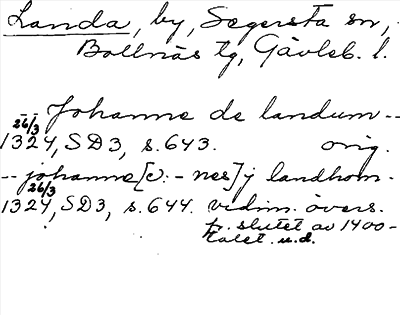 Landa, by, Segersta sn,
Bollnäs tg, Gävleb. l.
-- Johanne de landum --
26/3
1324, SD3, s. 643. orig.
-- johanne[ɔ: - nes] j landhom -
26/3
1324, SD3, s. 644. vidim. övers.
fr. slutet av 1400-
talet. u.d.